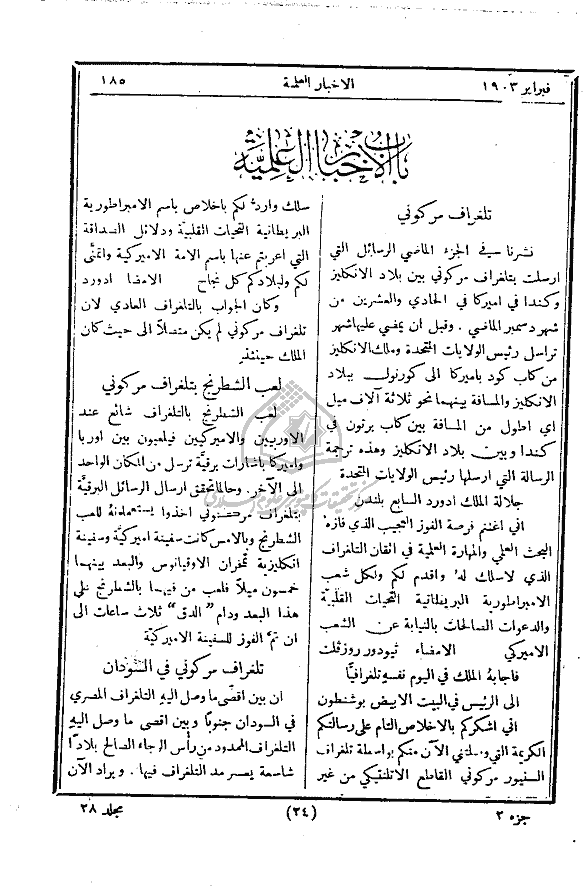 فبراير ١٩٠٣
الاخبار العلمية
١٨٥
باب الاخبار العلمية
تلغراف مركوني
نشرنا في الجزء الماضي الرسائل التي
ارسلت بتلغراف مركوني بين بلاد الانكليز
وكندا في اميركا في الحادي والعشرين من
شهر دسمبر الماضي . وقبل ان يمضي عليها شهر
تراسل رئيس الولايات المتحدة وملك الانكليز
من كاب كود باميركا الى كورنول ببلاد
الانكليز والمسافة بينهما نحو ثلاثة آلاف ميل
اي اطول من المسافة بين كاب برتون في
كندا وبين بلاد الانكليز وهذه ترجمة
الرسالة التي ارسلها رئيس الولايات المتحدة
جلالة الملك ادورد السابع بلندن
اني اغتنم فرصة الفوز العجيب الذي فازه
البحث العلمي والمهارة العلمية في اتقان التلغراف
الذي لا سلك له واقدم لكم ولكل شعب
الامبراطورية البريطانية التحيات القلبيَّة
والدعوات الصالحات بالنيابة عن الشعب
الاميركي الامضاء ثيودور روزفلت
فاجابهُ الملك في اليوم نفسهِ تلغرافيًّا
الى الرئيس في البيت الابيض بوشنطون
اني اشكركم بالاخلاص التام على رسالتكم
الكريمة التي وصلتني الآن منكم بواسطة تلغراف
السنيور مركوني القاطع الاتلنتيكي من غير
سلك واردُّ لكم باخلاص باسم الامبراطورية
البريطانية التحيات القلبية ودلائل الصداقة
التي اعربتم عنها باسم الامة الاميركية واتمنَّى
لكم ولبلادكم كل نجاح الامضا ادورد
وكان الجواب بالتلغراف العادي لان
تلغراف مركوني لم يكن متصلاً الى حيث كان
الملك حينئذٍ
لعب الشطرنج بتلغراف مركوني
لعب الشطرنج بالتلغراف شائع عند
الاوربيين والاميركيين فيلعبون بين اوربا
واميركا باشارات برقيَّة ترسل من المكان الواحد
الى الآخر. وحالما تحقق ارسال الرسائل البرقية
بتلغراف مركوني اخذوا يستعملونهُ للعب
الشطرنج وبالامس كانت سفينة اميركيَّة وسفينة
انكليزية تمخران الاوقيانوس والبعد بينهما
خمسون ميلاً فلعب من فيهما بالشطرنج على
هذا البعد ودام "الدق" ثلاث ساعات الى
ان تمَّ الفوز للسفينة الاميركيَّة
تلغراف مركوني في السودان
ان بين اقصى ما وصل اليهِ التلغراف المصري
في السودان جنوبًا وبين اقصى ما وصل اليهِ
التلغراف الممدود من رأس الرجاء الصالح بلادًا
شاسعة يعسر مد التلغراف فيها . ويراد الآن
جزء ٢
(٢٤)
مجلد ٢٨